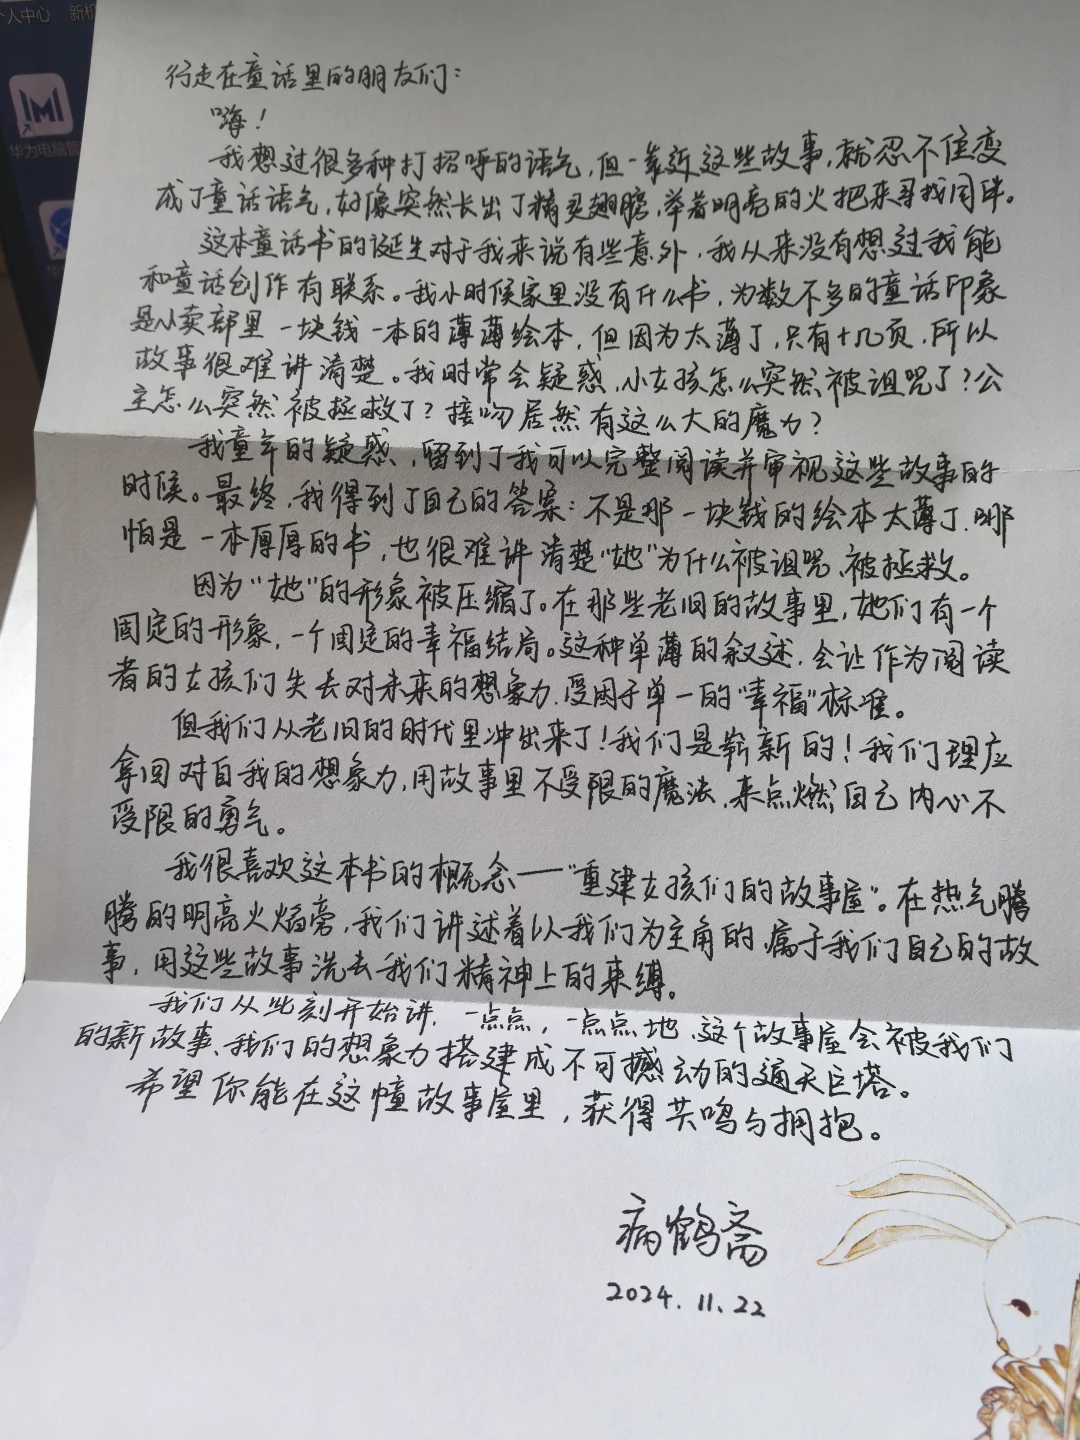 个人中心 新机
华为电脑管
行走在童话里的朋友们：
嗨！
我想过很多种打招呼的语气，但一靠近这些故事，就忍不住变
成了童话语气，好像突然长出了精灵翅膀，举着明亮的火把来寻找同伴。
这本童话书的诞生对于我来说有些意外，我从来没有想过我能
和童话创作有联系。我小时候家里没有什么书，为数不多的童话印象
是小卖部里一块钱一本的薄薄绘本，但因为太薄了，只有十几页，所以
故事很难讲清楚。我时常会疑惑，小女孩怎么突然被诅咒了？公
主怎么突然被拯救了？接吻居然有这么大的魔力？
我童年的疑惑，留到了我可以完整阅读并审视这些故事的
时候。最终，我得到了自己的答案：不是那一块钱的绘本太薄了，哪
怕是一本厚厚的书，也很难讲清楚“她”为什么被诅咒、被拯救。
因为“她”的形象被压缩了。在那些老旧的故事里，她们有一个
固定的形象，一个固定的幸福结局。这种单薄的叙述，会让作为阅读
者的女孩们失去对未来的想象力，受困于单一的“幸福”标准。
但我们从老旧的时代里冲出来了！我们是崭新的！我们理应
拿回对自我的想象力，用故事里不受限的魔法，来点燃自己内心不
受限的勇气。
我很喜欢这本书的概念——“重建女孩们的故事屋”。在热气腾
腾的明亮火焰旁，我们讲述着以我们为主角的、属于我们自己的故
事，用这些故事洗去我们精神上的束缚。
我们从此刻开始讲，一点点，一点点地，这个故事屋会被我们
的新故事、我们的想象力搭建成不可撼动的通天巨塔。
希望你能在这幢故事屋里，获得共鸣与拥抱。
病鹤斋
2024.11.22